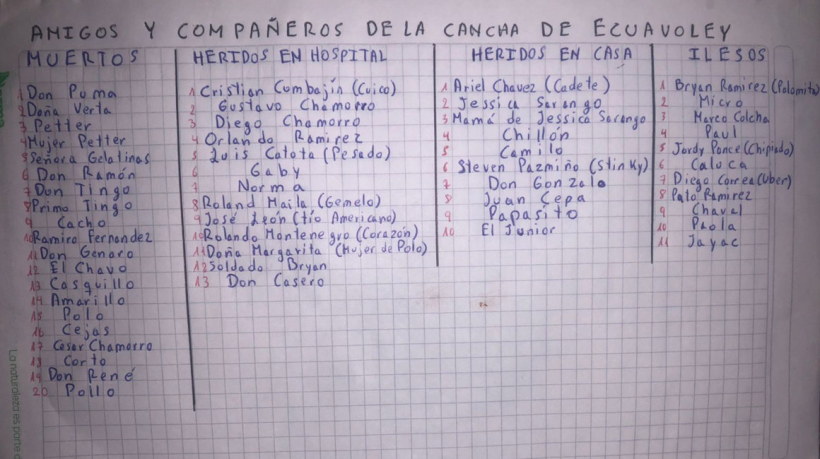 AMIGOS Y COMPAÑEROS DE LA CANCHA DE ECUAVOLEY
MUERTOS
1 Don Puma
2 Doña Verta
3 Petter
4 Mujer Petter
5 Señora Gelatinas
6 Don Ramón
7 Don Tingo
8 Primo Tingo
9 Cacho
10 Ramiro Fernandez
11 Don Genaro
12 El Chavo
13 Casquillo
14 Amarillo
15 Polo
16 Cejas
17 Cesar Chamorro
18 Corto
19 Don René
20 Pollo
HERIDOS EN HOSPITAL
1 Cristian Combajín (Cuico)
2 Gustavo Chamorro
3 Diego Chamorro
4 Orlando Ramirez
5 Luis Catota (Pesado)
6 Gaby
7 Norma
8 Roland Maila (Gemelo)
9 José León (tío Americano)
10 Rolando Montenegro (Corazón)
11 Doña Margarita (Mujer de Polo)
12 Soldado Bryan
13 Don Casero
HERIDOS EN CASA
1 Ariel Chavez (Cadete)
2 Jessica Sarango
3 Mamá de Jessica Sarango
4 Chillón
5 Camilo
6 Steven Pazmiño (Stinky)
7 Don Gonzalo
8 Juan Cepa
9 Papasito
10 El Junior
ILESOS
1 Bryan Ramirez (Palomita)
2 Micro
3 Marco Colcha
4 Paul
5 Jordy Ponce (Chipiado)
6 Caluca
7 Diego Correa (Uber)
8 Pato Ramirez
9 Chaval
10 Paola
11 Jayac
La naturaleza es parte